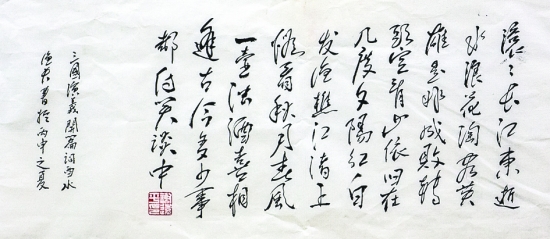 滚〻长江東逝
水浪花淘尽英
雄是非成敗轉
頭空青山依旧在
几度夕陽红白
发渔樵江渚上
惯看秋月春風
一壶浊酒喜相
逢古今多少事
都付笑談中
三國演義開篇詞
書於丙申之夏